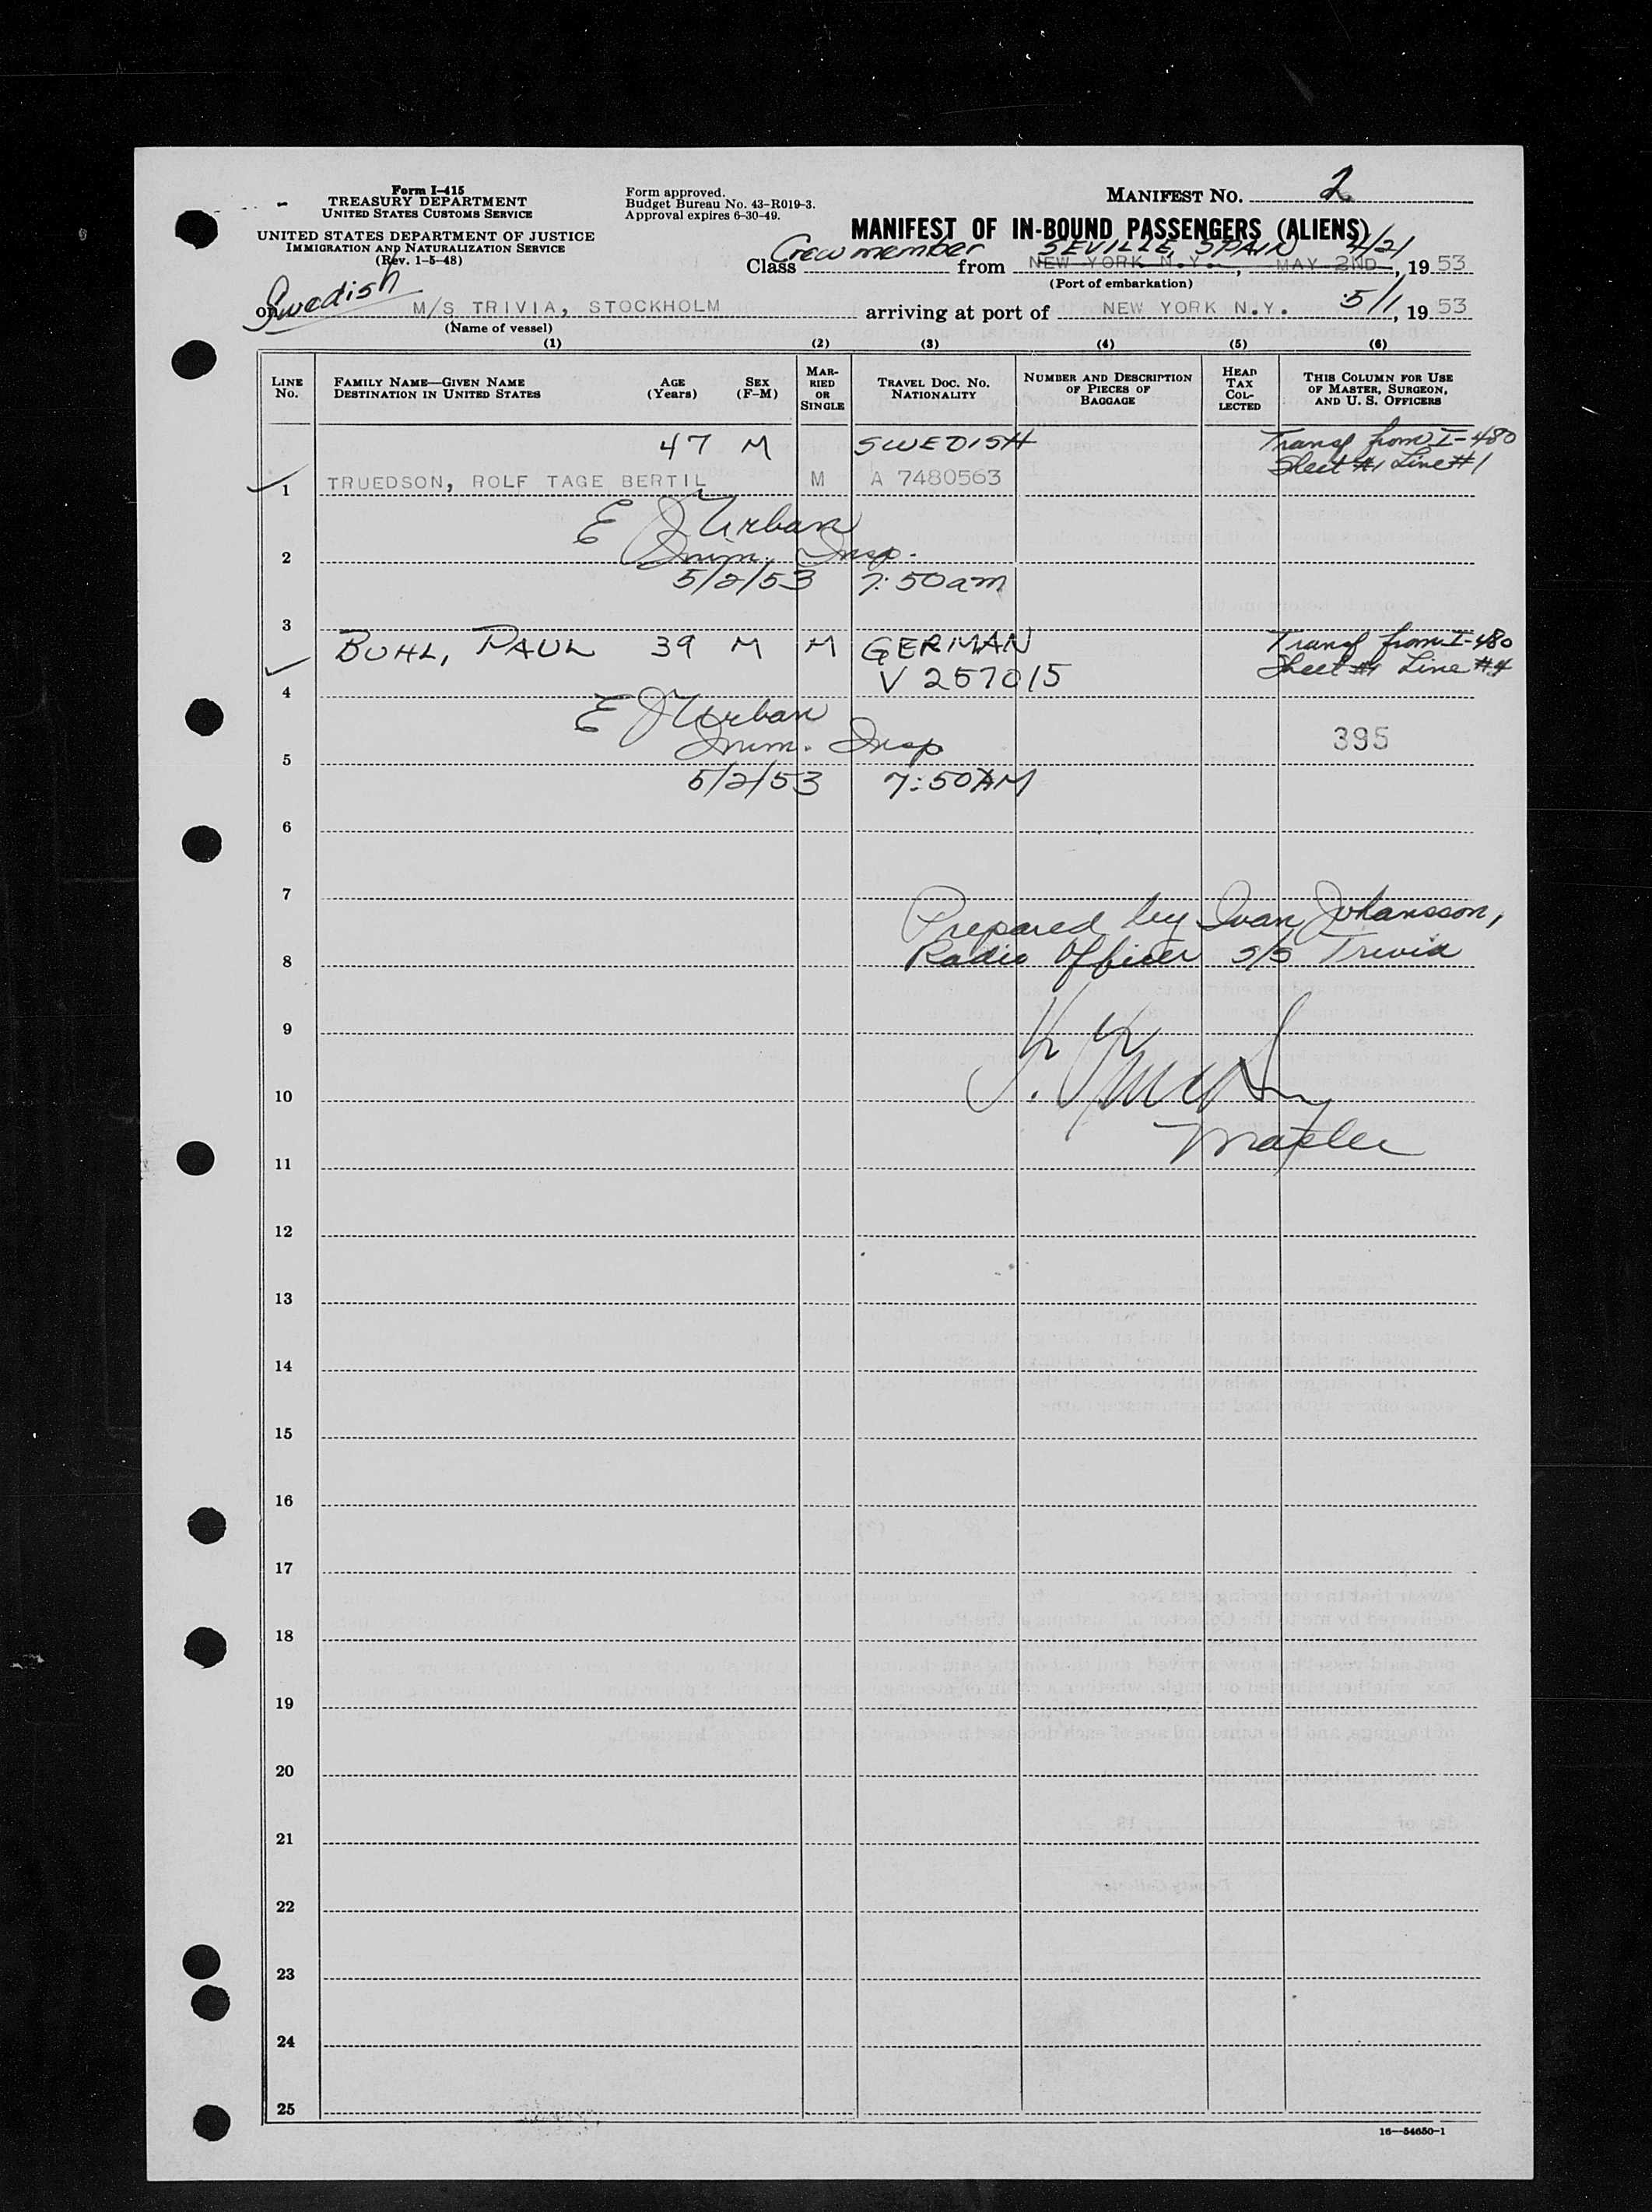 Form I-415
TREASURY DEPARTMENT
UNITED STATES CUSTOMS SERVICE
UNITED STATES DEPARTMENT OF JUSTICE
IMMIGRATION AND NATURALIZATION SERVICE
(Rev. 1-5-48)
Form approved.
Budget Bureau No. 43-R019-3.
Approval expires 6-30-49.
MANIFEST NO. 2
MANIFEST OF IN-BOUND PASSENGERS (ALIENS)
SEVILLE, SPAIN 4/21
Class Crewmember from NEW YORK N.Y., MAY 2ND, 19 53
(Port of embarkation)
on Swedish M/S TRIVIA, STOCKHOLM arriving at port of NEW YORK N.Y. 5/1, 19 53
(Name of vessel)
(1) (2) (3) (4) (5) (6)
LINE NO. FAMILY NAME—GIVEN NAME DESTINATION IN UNITED STATES AGE (Years) SEX (F-M) MARRIED OR SINGLE TRAVEL DOC. NO. NATIONALITY NUMBER AND DESCRIPTION OF PIECES OF BAGGAGE HEAD TAX COLLECTED THIS COLUMN FOR USE OF MASTER, SURGEON, AND U. S. OFFICERS
47 M SWEDISH Transf from I-480
Sheet #1 Line #1
1 TRUEDSON, ROLF TAGE BERTIL M A 7480563
E J Urban
2 Imm. Insp.
5/2/53 7:50am
3
BUHL, PAUL 39 M M GERMAN Transf from I-480
4 V 257015 Sheet #1 Line #4
E J Urban
Imm. Insp 395
5
5/2/53 7:50AM
6
7
Prepared by Ivan Johansson,
8 Radio Officer S/S Trivia
9
10
Master
11
12
13
14
15
16
17
18
19
20
21
22
23
24
25
16—54650-1